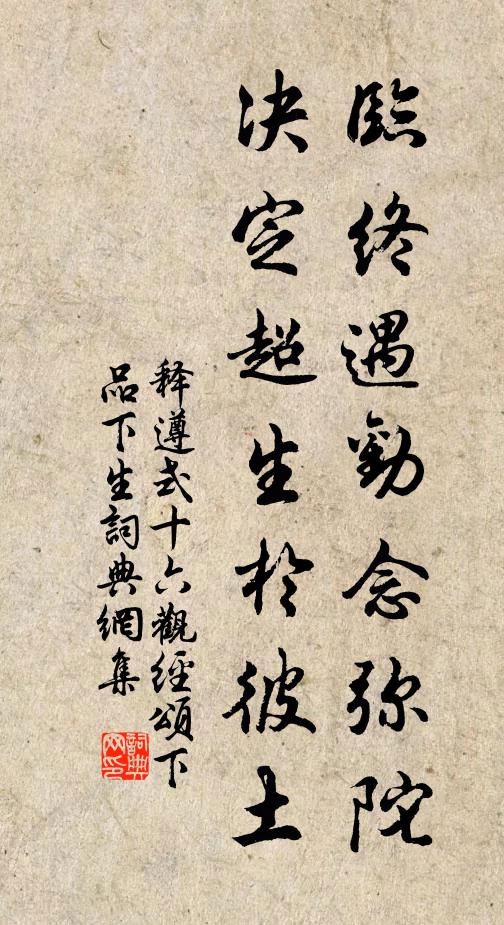 臨終遇勸念弥陀
決定超生於彼土
释遵式十六觀經頌下
品下生詞典網集
詞典
网印